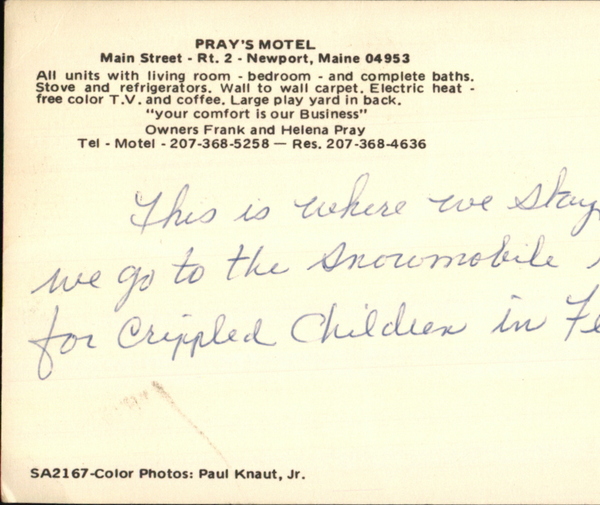 PRAY'S MOTEL
Main Street - Rt. 2 - Newport, Maine 04953
All units with living room - bedroom - and complete baths.
Stove and refrigerators. Wall to wall carpet. Electric heat -
free color T.V. and coffee. Large play yard in back.
"your comfort is our Business"
Owners Frank and Helena Pray
Tel - Motel - 207-368-5258 — Res. 207-368-4636
This is where we stay
we go to the snowmobile
for Crippled Children in Fe
SA2167-Color Photos: Paul Knaut, Jr.